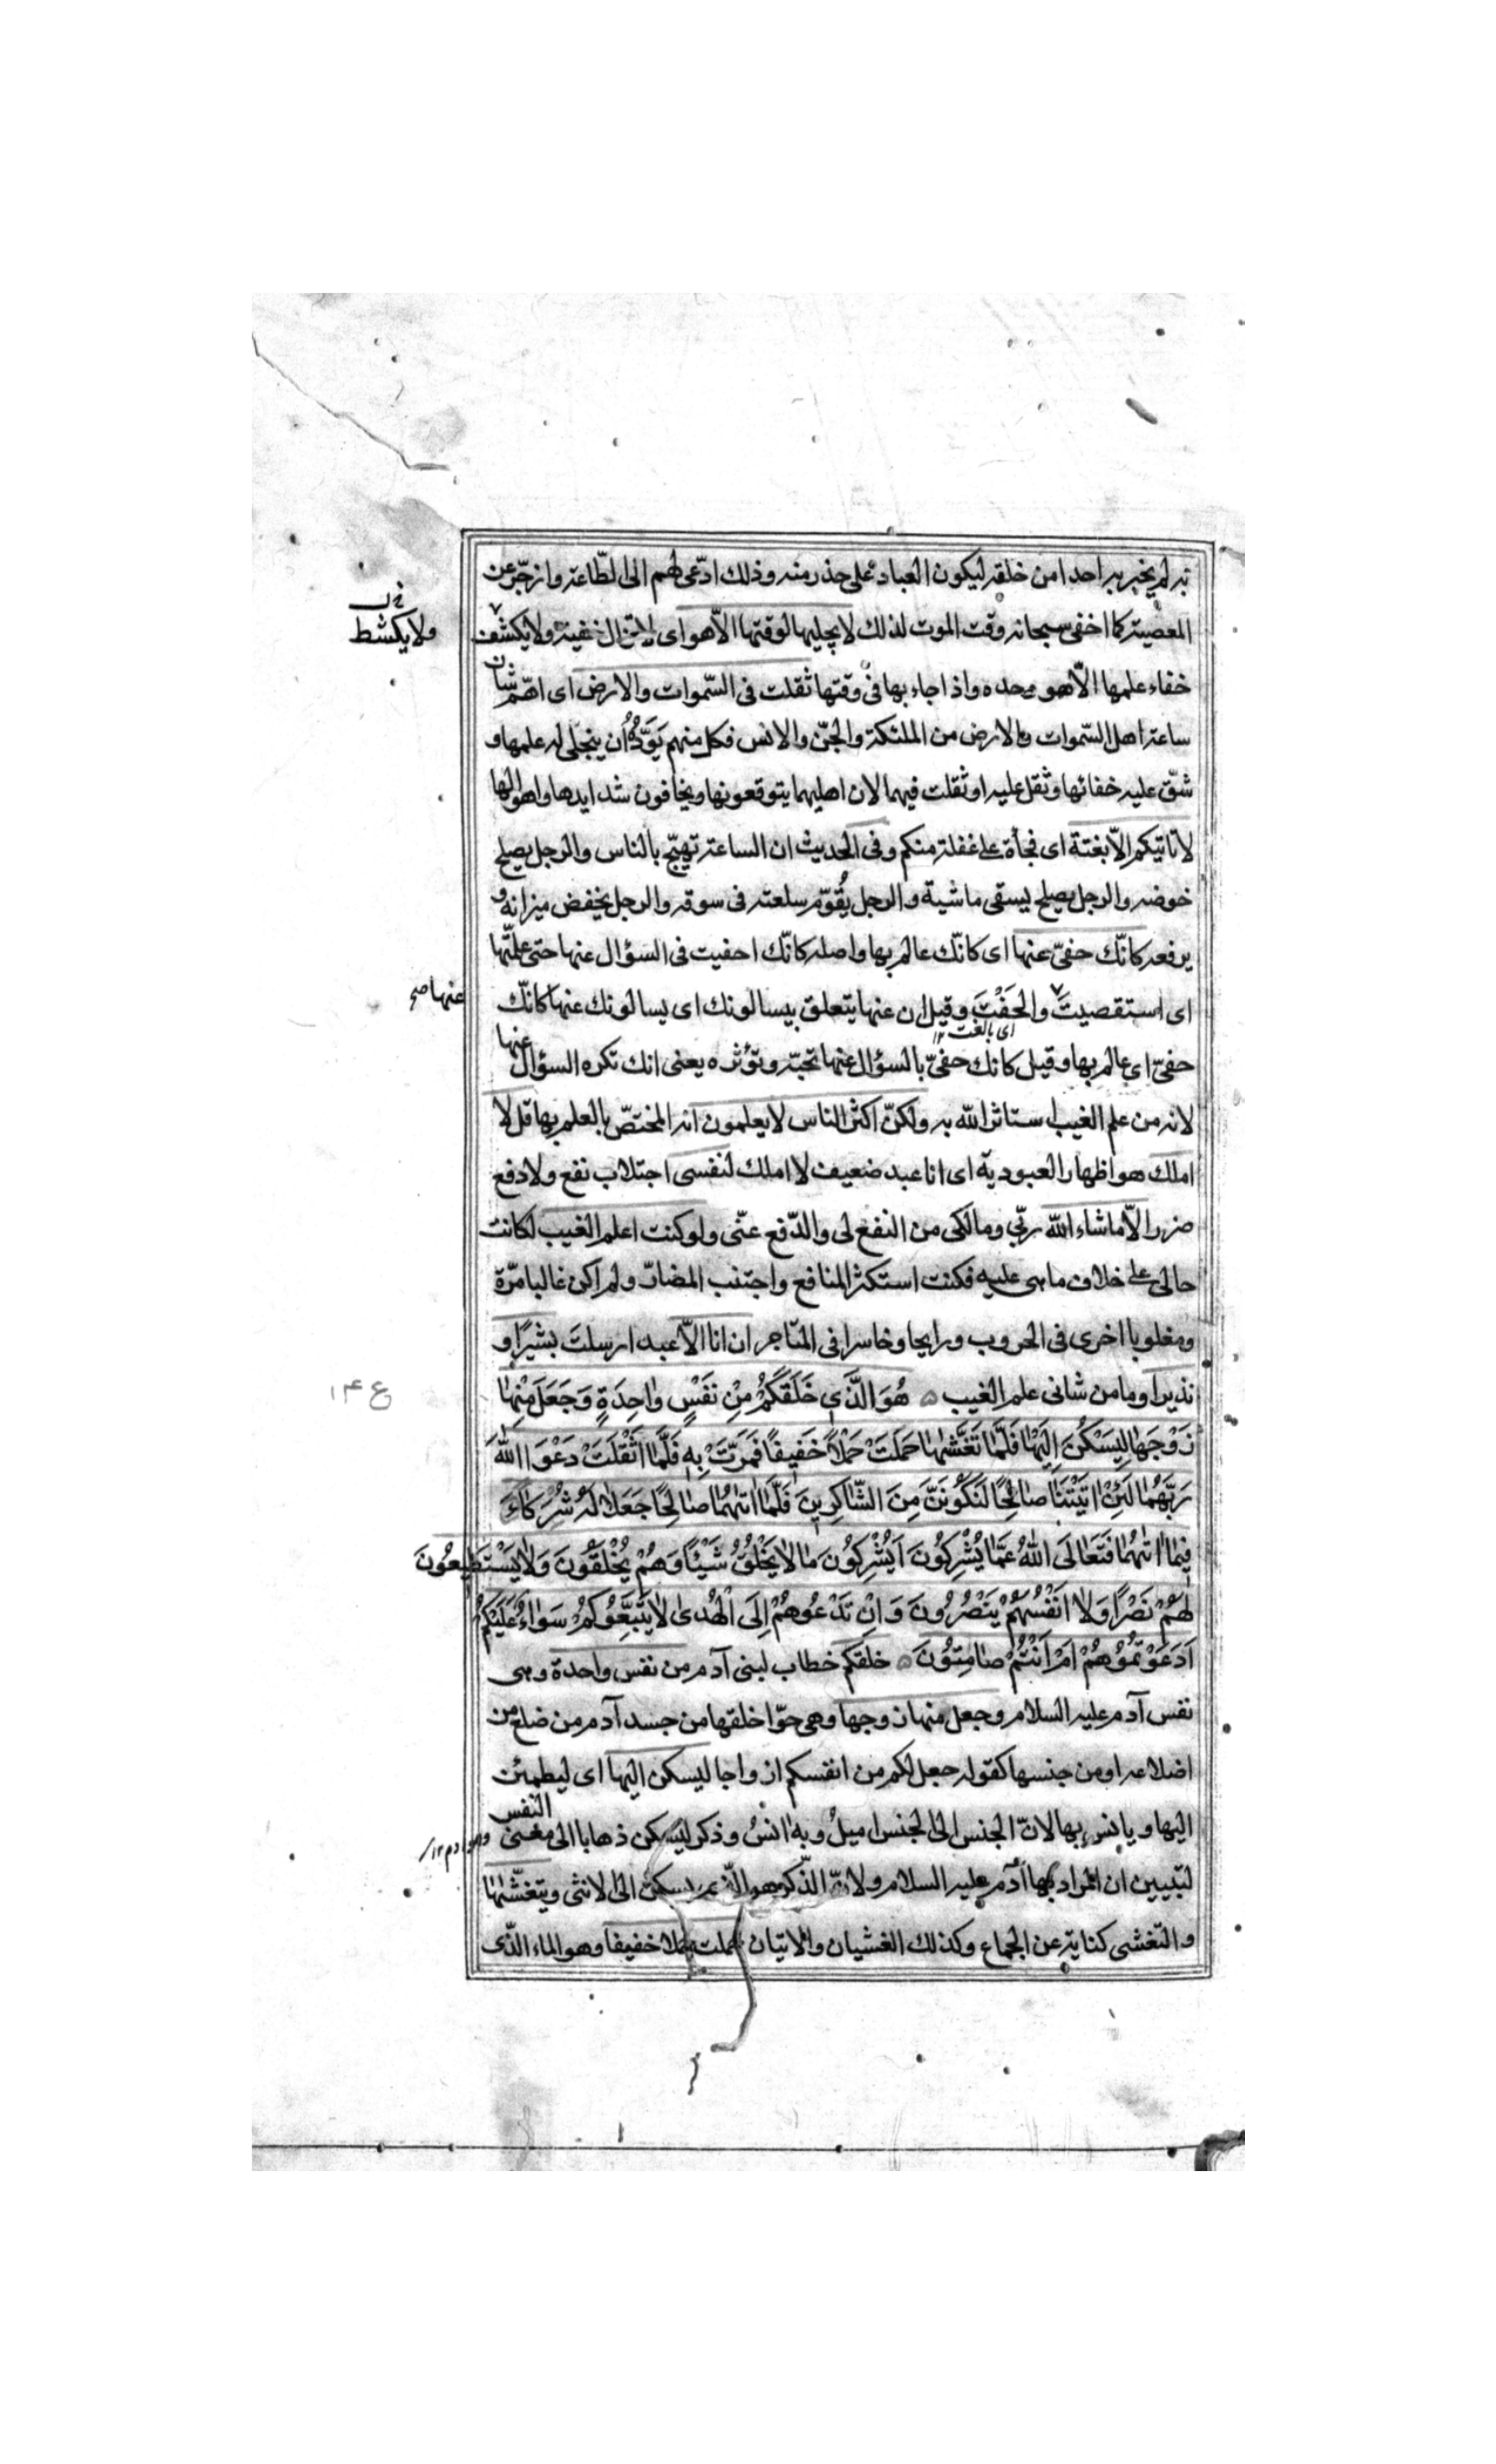 به لم يخبر به احدا من خلقه ليكون العباد على حذر منه وذلك ادّعى لهم الى الطّاعة وازجر عن
المعصية كما اخفى سبحانه وقت الموت لذلك لا يجليها لوقتها الّا هو اى لا تزال خفية ولا يكشف
ولا يكشط
خفاء علمها الّا هو وحده واذا جاء بها فى وقتها ثقلت فى السّموات والارض اى اهمّ شان
ساعة اهل السّموات والارض من الملئكة والجنّ والانس فكل منهم يَوَدُّ أن ينجلى له علمها و
شقّ عليه خفائها وثقل عليه او ثقلت فيهما لان اهليهما يتوقعونها ويخافون شدايدها واهوالها
لا تاتيكم الّا بغتة اى فجأة على غفلة منكم وفى الحديث ان الساعة تهيّج بالناس والرجل يصلح
خوضه والرجل يصلح يسقى ماشية والرجل يُقوّم سلعته فى سوقه والرجل يخفض ميزانه و
يرفعه كانّك حفىّ عنها اى كانّك عالم بها واصله كانّك احفيت فى السؤال عنها حتى علمتها
اى استقصيتَ والحَفْتَ وقيل ان عنها يتعلق بيسالونك اى يسالونك عنها كانّك
عنها صح
اى بالغت ١٢
حفىّ اى عالم بها وقيل كانك حفىّ بالسؤال عنها تحبّه وتؤثره يعنى انك تكره السؤال عنها
لانه من علم الغيب استاثر الله به ولكنّ اكثر الناس لا يعلمون انه المختصّ بالعلم بها قل لا
املك هو اظهار العبودية اى انا عبد ضعيف لا املك لنفسى اجتلاب نفع ولا دفع
ضرر الّا ما شاء الله ربّى ومالكى من النفع لى والدّفع عنّى ولو كنت اعلم الغيب لكانت
حالى على خلاف ما هى عليه فكنت استكثر المنافع واجتنب المضارّ ولم اكن غالبا مرّة
ومغلوبا اخرى فى الحروب ورابحا وخاسرا فى المتاجر ان انا الّا عبد ارسلت بشيرًا و
نذيرا وما من شانى علم الغيب هُوَ الَّذِي خَلَقَكُمْ مِنْ نَفْسٍ وٰاحِدَةٍ وَجَعَلَ مِنْهٰا
ع ١٤
زَوْجَهٰا لِيَسْكُنَ اِلَيْهٰا فَلَمَّا تَغَشّٰىهٰا حَمَلَتْ حَمْلًا خَفِيفًا فَمَرَّتْ بِهِ فَلَمَّا اَثْقَلَتْ دَعَوَا اللّٰهَ
رَبَّهُمٰا لَئِنْ اٰتَيْتَنٰا صٰالِحًا لَنَكُونَنَّ مِنَ الشّٰاكِرِينَ فَلَمَّا اٰتٰىهُمٰا صٰالِحًا جَعَلٰا لَهُ شُرَكٰاءَ
فِيمٰا اٰتٰىهُمٰا فَتَعٰالَى اللّٰهُ عَمَّا يُشْرِكُونَ اَيُشْرِكُونَ مٰا لٰا يَخْلُقُ شَيْئًا وَهُمْ يُخْلَقُونَ وَلٰا يَسْتَطِيعُونَ
لَهُمْ نَصْرًا وَلٰا اَنْفُسَهُمْ يَنْصُرُونَ وَاِنْ تَدْعُوهُمْ اِلَى الْهُدىٰ لٰا يَتَّبِعُوكُمْ سَوٰاءٌ عَلَيْكُمْ
اَدَعَوْتُمُوهُمْ اَمْ اَنْتُمْ صٰامِتُونَ خلقكم خطاب لبنى آدم من نفس واحدة وهى
نفس آدم عليه السلام وجعل منها زوجها وهى حوّا خلقها من جسد آدم من ضلع من
اضلاعه او من جنسها كقوله جعل لكم من انفسكم ازواجا ليسكن اليها اى ليطمئن
اليها ويانس بها لانّ الجنس الى الجنس اميلُ وبه انسُ وذكر ليسكن ذهابا الى معنى النفس
لتبيين ان المراد بها آدم عليه السلام ولانّ الذّكر هو الذى يسكن الى الانثى ويتغشّىٰها
والتغشى كناية عن الجماع وكذلك الغشيان والاتيان حملت حملا خفيفا وهو الماء الّذى